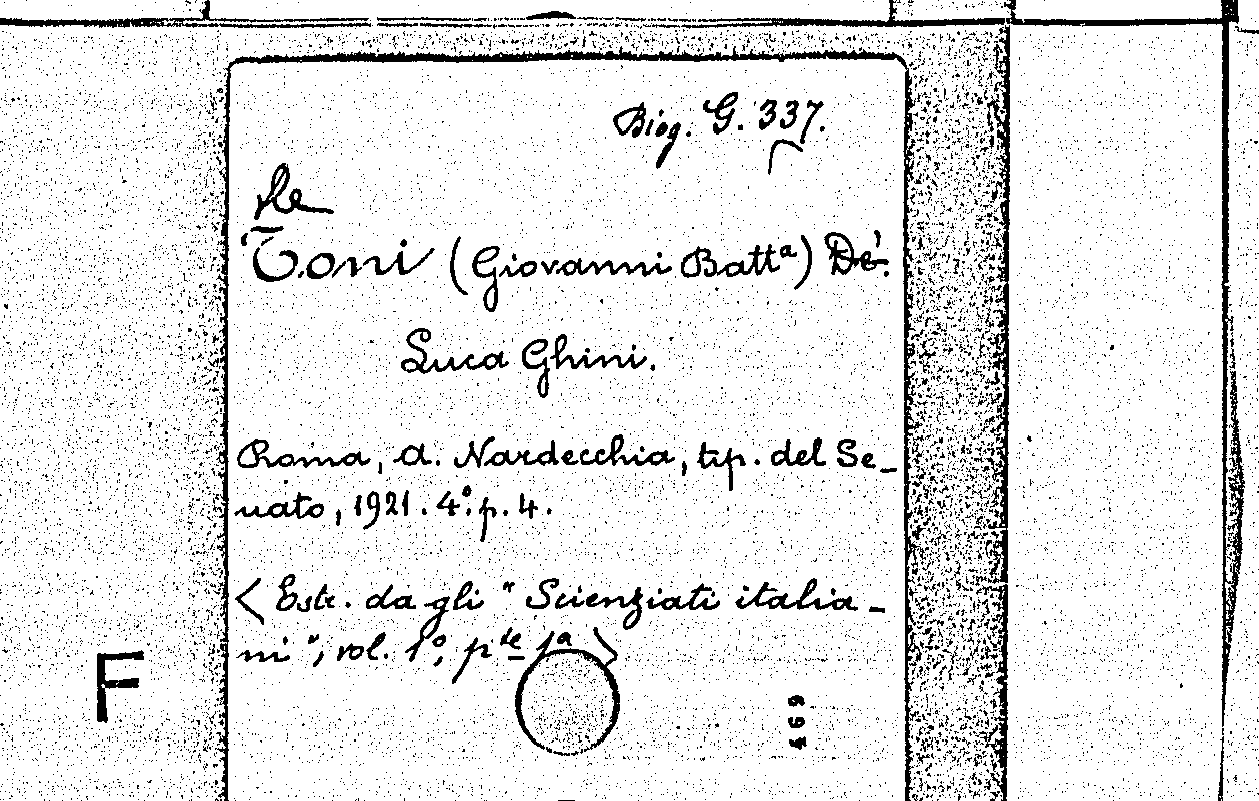 Biog. G. 337.
de
Toni (Giovanni Battª) De'.
Luca Ghini.
Roma, A. Nardecchia, tip. del Se-
nato, 1921. 4º. p. 4.
< Estr. da gli "Scienziati italia-
ni", vol. 1º, pte 1ª >
F
469